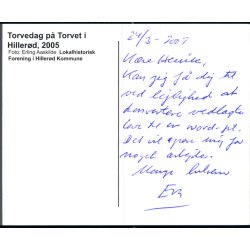 Torvedag på Torvet i
Hillerød, 2005
Foto: Erling Aaskilde Lokalhistorisk
Forening i Hillerød Kommune
24/3-2007
Kære Henrik,
Kan jeg få dig til
ved lejlighed at
konvertere vedlagte
tekst til en word-fil.
Det vil spare mig for
noget arbejde.
Mange hilsner
Eva